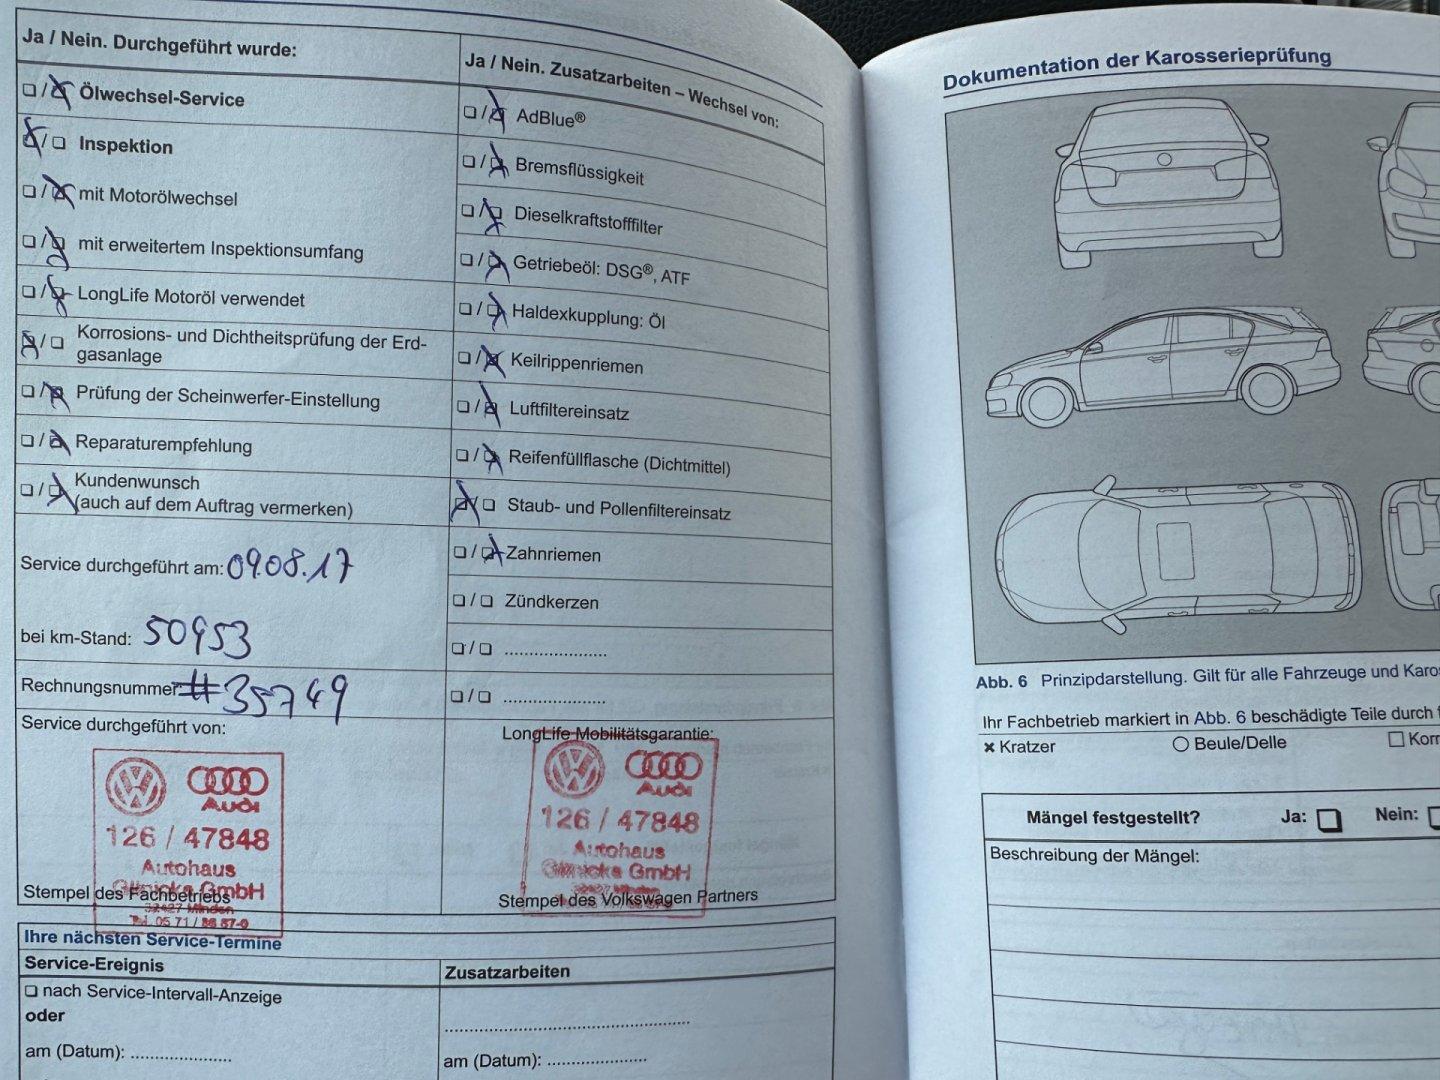 Ja / Nein. Durchgeführt wurde:
❏ / ❏ Ölwechsel-Service
❏ / ❏ Inspektion
❏ / ❏ mit Motorölwechsel
❏ / ❏ mit erweitertem Inspektionsumfang
❏ / ❏ LongLife Motoröl verwendet
❏ / ❏ Korrosions- und Dichtheitsprüfung der Erd-
gasanlage
❏ / ❏ Prüfung der Scheinwerfer-Einstellung
❏ / ❏ Reparaturempfehlung
❏ / ❏ Kundenwunsch
(auch auf dem Auftrag vermerken)
Service durchgeführt am: 09.08.17
bei km-Stand: 50953
Rechnungsnummer: #35749
Service durchgeführt von:
Audi
126 / 47848
Autohaus
Glinicke GmbH
32427 Minden
Tel. 05 71 / 88 87-0
Stempel des Fachbetriebs
Ja / Nein. Zusatzarbeiten – Wechsel von:
❏ / ❏ AdBlue®
❏ / ❏ Bremsflüssigkeit
❏ / ❏ Dieselkraftstofffilter
❏ / ❏ Getriebeöl: DSG®, ATF
❏ / ❏ Haldexkupplung: Öl
❏ / ❏ Keilrippenriemen
❏ / ❏ Luftfiltereinsatz
❏ / ❏ Reifenfüllflasche (Dichtmittel)
❏ / ❏ Staub- und Pollenfiltereinsatz
❏ / ❏ Zahnriemen
❏ / ❏ Zündkerzen
❏ / ❏ .....................
❏ / ❏ .....................
LongLife Mobilitätsgarantie:
Audi
126 / 47848
Autohaus
Glinicke GmbH
32427 Minden
Stempel des Volkswagen Partners
Ihre nächsten Service-Termine
Service-Ereignis
❏ nach Service-Intervall-Anzeige
oder
am (Datum): .....................
Zusatzarbeiten
..................................................
am (Datum): .....................
Dokumentation der Karosserieprüfung
Abb. 6 Prinzipdarstellung. Gilt für alle Fahrzeuge und Karos
Ihr Fachbetrieb markiert in Abb. 6 beschädigte Teile durch f
× Kratzer ○ Beule/Delle ☐ Korr
Mängel festgestellt? Ja: ❏ Nein: ❏
Beschreibung der Mängel: